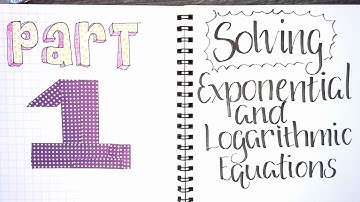 PART
1
Solving
Exponential
and
Logarithmic
Equations